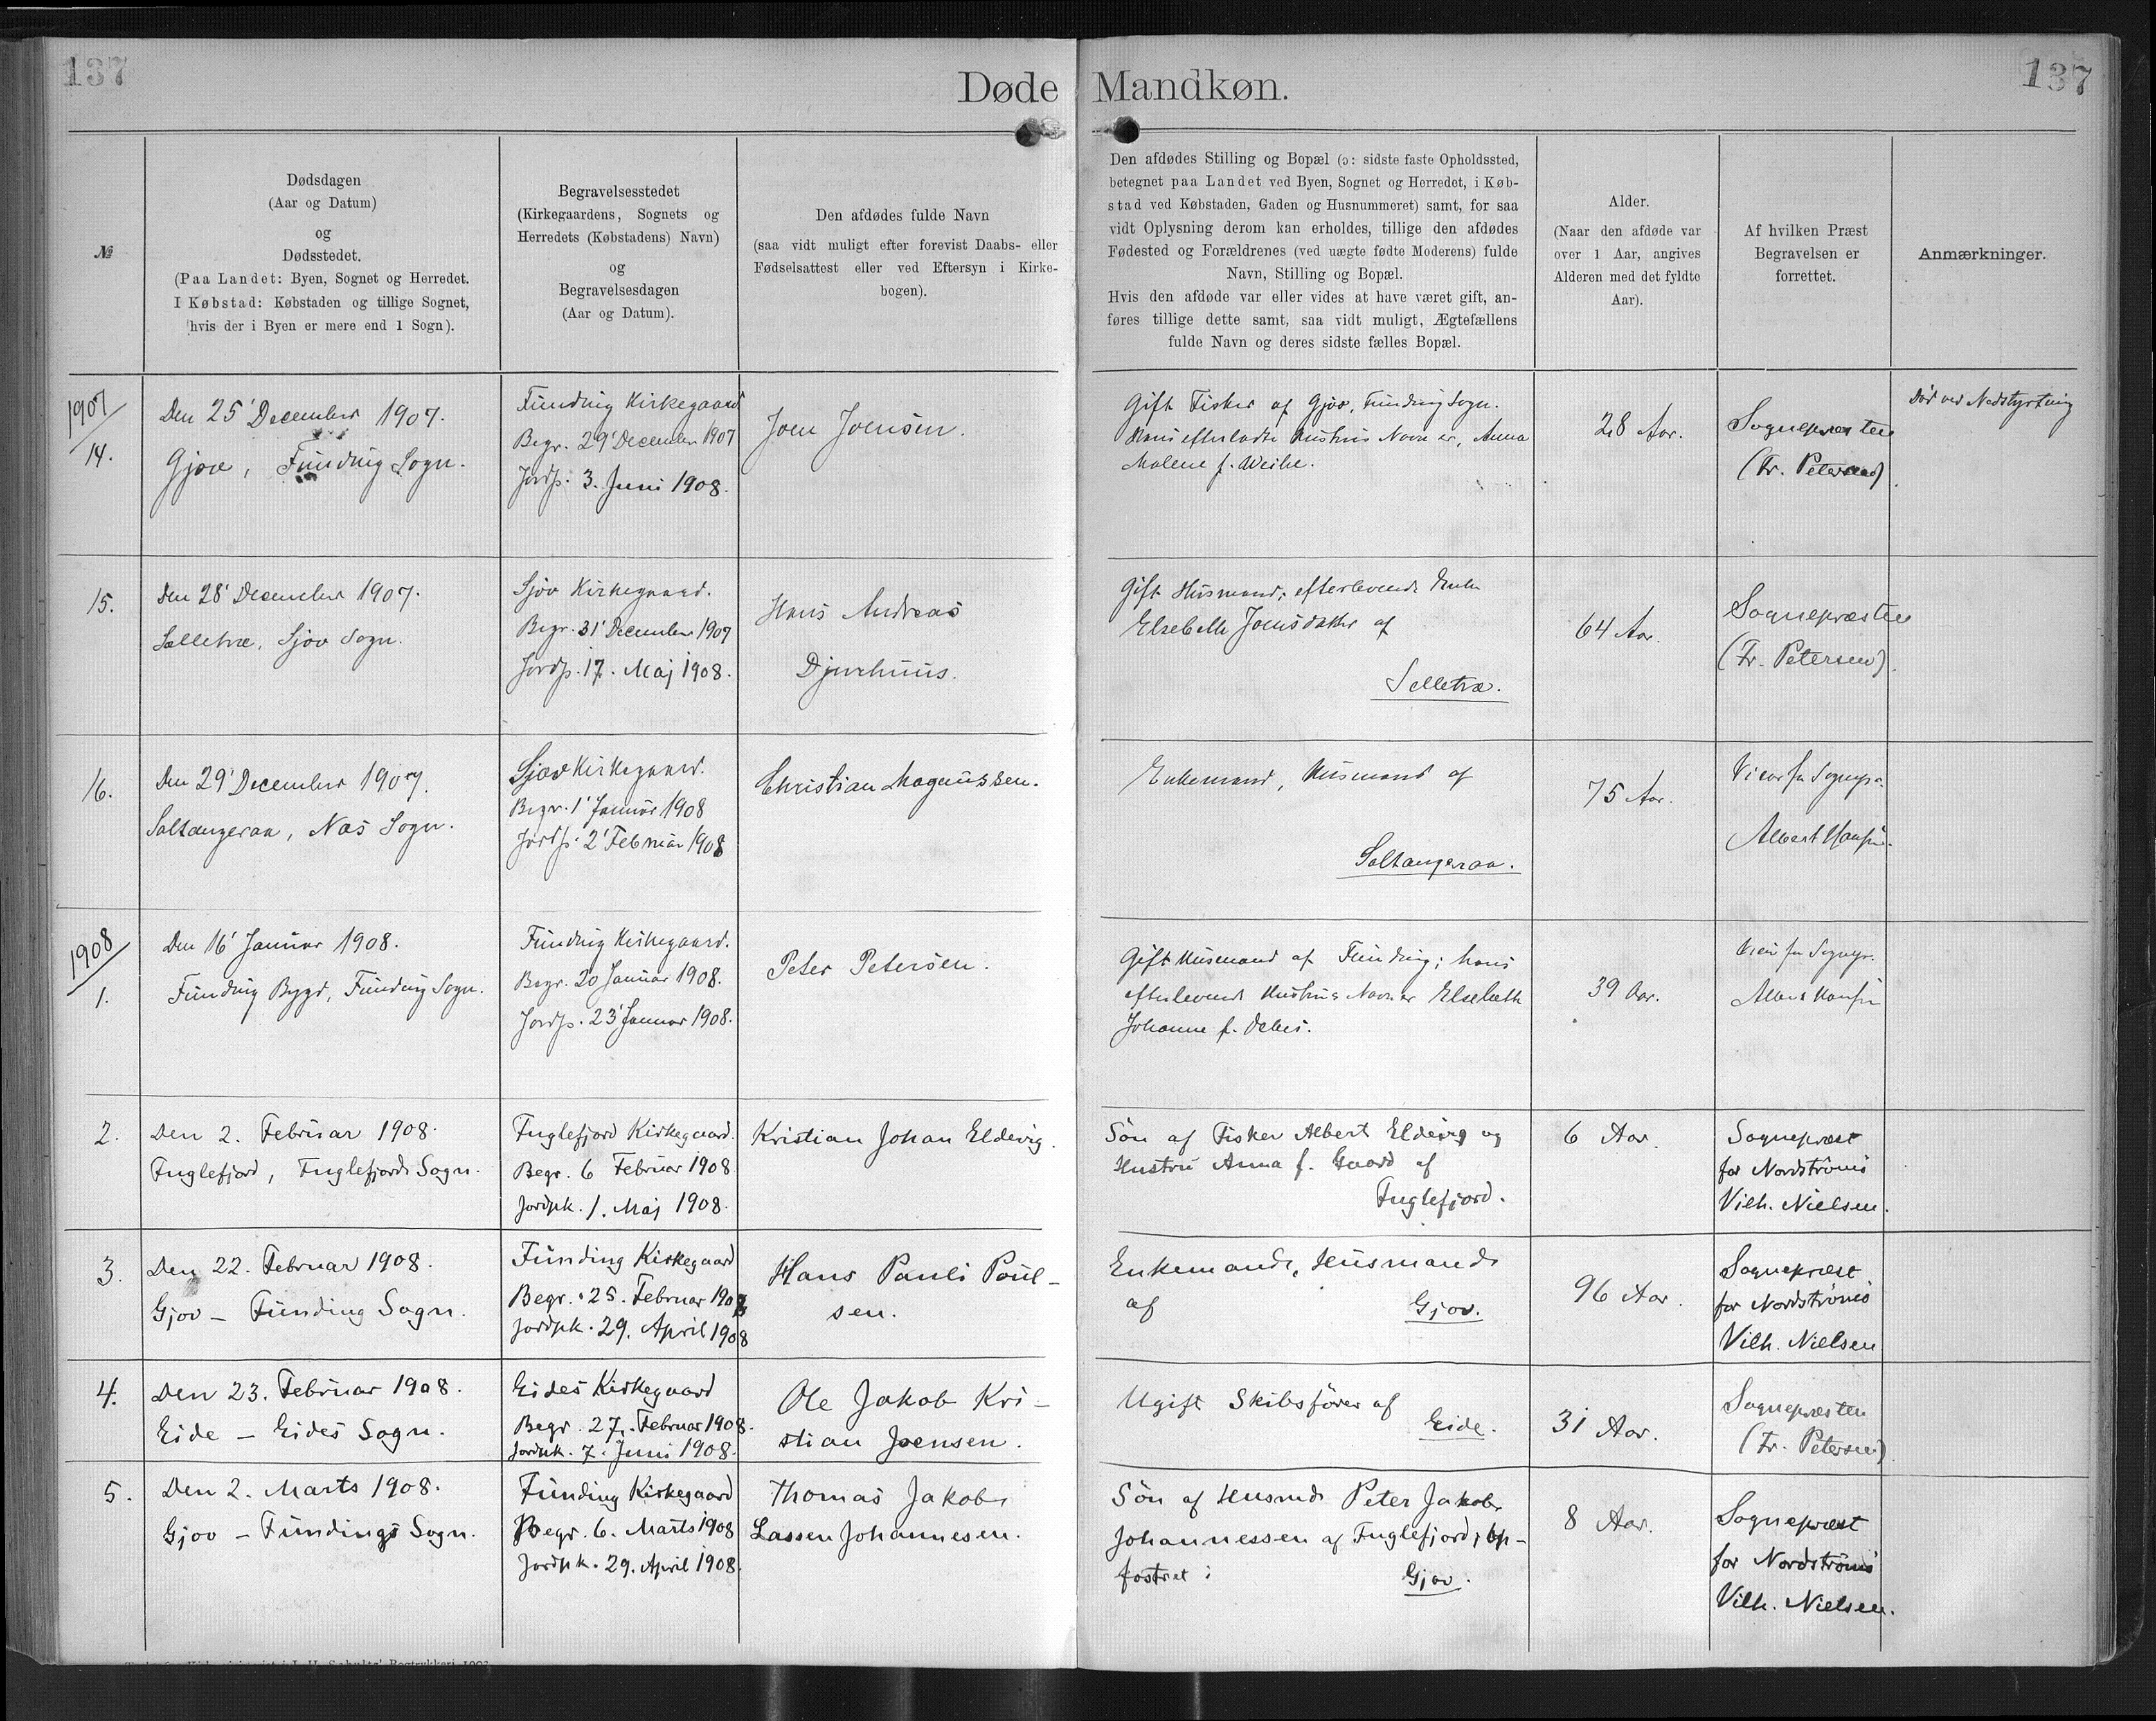 137
137
Døde Mandkøn.
№
Dødsdagen
(Aar og Datum)
og
Dødsstedet.
(Paa Landet: Byen, Sognet og Herredet.
I Købstad: Købstaden og tillige Sognet,
hvis der i Byen er mere end 1 Sogn).
Begravelsesstedet
(Kirkegaardens, Sognets og
Herredets (Købstadens) Navn)
og
Begravelsesdagen
(Aar og Datum).
Den afdødes fulde Navn
(saa vidt muligt efter forevist Daabs- eller
Fødselsattest eller ved Eftersyn i Kirke-
bogen).
Den afdødes Stilling og Bopæl (ɔ: sidste faste Opholdssted,
betegnet paa Landet ved Byen, Sognet og Herredet, i Køb-
stad ved Købstaden, Gaden og Husnummeret) samt, for saa
vidt Oplysning derom kan erholdes, tillige den afdødes
Fødested og Forældrenes (ved uægte fødte Moderens) fulde
Navn, Stilling og Bopæl.
Hvis den afdøde var eller vides at have været gift, an-
føres tillige dette samt, saa vidt muligt, Ægtefællens
fulde Navn og deres sidste fælles Bopæl.
Alder.
(Naar den afdøde var
over 1 Aar, angives
Alderen med det fyldte
Aar).
Af hvilken Præst
Begravelsen er
forrettet.
Anmærkninger.
1907
14.
Den 25' December 1907.
Gjov, Funding Sogn.
Funding Kirkegaard
Begr. 29' December 1907
Jordp. 3. Juni 1908.
Joen Joensen.
Gift Fisker af Gjov, Funding Sogn.
Hans efterladte Hustrus Navn er, Anna
Malene f. Weihe.
28 Aar.
Sognepræsten
(Fr. Petersen)
Død ved Nedstyrtning
15.
Den 28' December 1907.
Selletræ, Sjov Sogn.
Sjov Kirkegaard.
Begr. 31' December 1907
Jordp. 17. Maj 1908.
Hans Andreas
Djurhuus.
Gift Husmand; efterlevende Enke
Elsebeth Joensdatter af
Selletræ.
64 Aar.
Sognepræsten
(Fr. Petersen).
16.
Den 29' December 1907.
Saltangeraa, Nas Sogn.
Sjov Kirkegaard.
Begr. 1' Januar 1908
Jordp. 2' Februar 1908
Christian Magnussen.
Enkemand, Husmand af
Saltangeraa.
75 Aar.
Vicar for Sognepr.
Albert Hansen.
1908
1.
Den 16' Januar 1908.
Funding Bygd, Funding Sogn.
Funding Kirkegaard.
Begr. 20 Januar 1908.
Jordp. 23' Januar 1908.
Peter Petersen.
Gift Husmand af Funding; hans
efterlevende Hustrus Navn er Elsebeth
Johanne f. Debes.
39 Aar.
Vicar for Sognepr.
Albert Hansen
2.
Den 2. Februar 1908.
Fuglefjord, Fuglefjords Sogn.
Fuglefjord Kirkegaard.
Begr. 6 Februar 1908
Jordpk. 1. Maj 1908.
Kristian Johan Eldevig.
Søn af Fisker Albert Eldevig og
Hustru Anna f. Gaard af
Fuglefjord.
6 Aar.
Sognepræst
for Nordströms
Vilh. Nielsen.
3.
Den 22. Februar 1908.
Gjov – Funding Sogn.
Funding Kirkegaard
Begr. 25. Februar 1908
Jordpk. 29. April 1908
Hans Pauli Poul-
sen.
Enkemand, Husmand
af Gjov.
96 Aar.
Sognepræst
for Nordströms
Vilh. Nielsen
4.
Den 23. Februar 1908.
Eide – Eides Sogn.
Eides Kirkegaard
Begr. 27. Februar 1908.
Jordpk. 7. Juni 1908.
Ole Jakob Kri-
stian Joensen.
Ugift Skibsfører af
Eide.
31 Aar.
Sognepræsten
(Fr. Petersen).
5.
Den 2. Marts 1908.
Gjov – Fundings Sogn.
Funding Kirkegaard
Begr. 6. Marts 1908
Jordpk. 29. April 1908.
Thomas Jakob
Lassen Johannesen.
Søn af Husmd. Peter Jakob
Johannessen af Fuglefjord, op-
fostret i Gjov.
8 Aar.
Sognepræst
for Nordströms
Vilh. Nielsen.